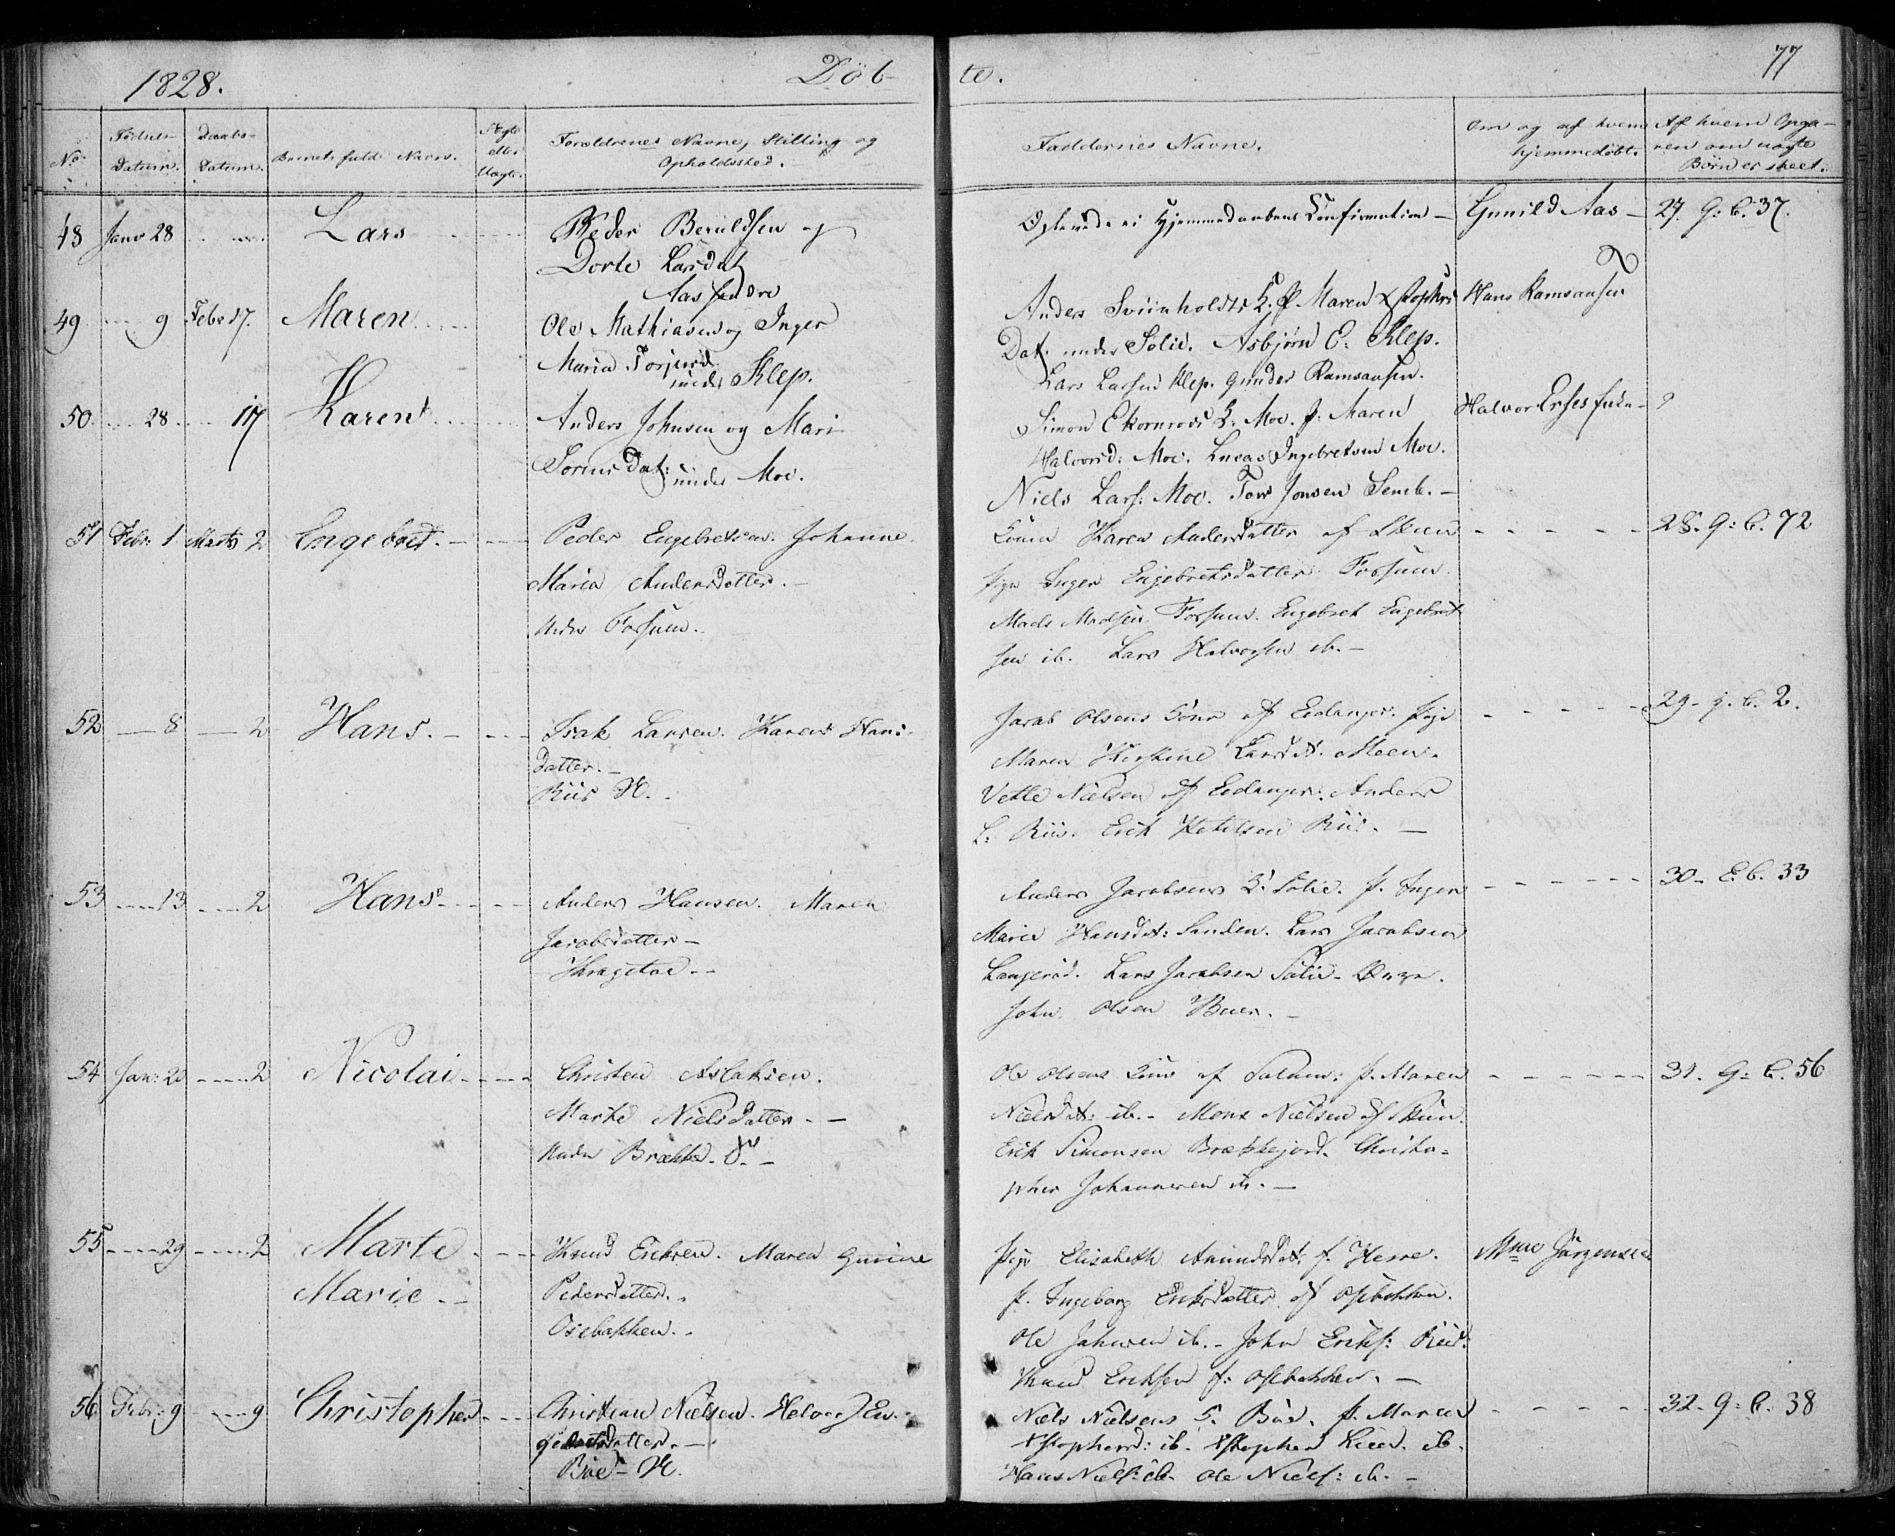 1828.
Døb-
te.
77
No.
Fødsels-
Datum.
Daabs-
Datum.
Barnets fulde Navn.
Ægte
eller
Uægte.
Forældrenes Navne, Stilling og
Opholdssted.
Faddernes Navne.
Om og af hvem
hjemmedøbt.
Af hvem Opga-
ven om uægte
Børn er skeet.
48 Janv 28 Lars
Peder Beruldsen og
Dorte Larsdat
Aas
Hjemmedaabens Confirmation -
Gunild Aas -
27. G: C. 37.
49 9 Febr 17. Maren
Ole Mathiasen og Inger
Maria
under Klep.
Anders K. P. Maren
Dat. under Solie. Asbjørn O: Klep.
Lars Larsen Klep. Gunder Ramsausen.
Hans Ramsausen
50. 28. 17 Karen
Anders Johnsen og Mari
Dat: under Moe.
Simon K: Moe. P. Maren
Halvorsd: Moe. Lucas Ingebretsen Moe.
Niels Lars: Moe. Tov Jonsen Semb. -
Halvor
51 Febr: 1 Marts 2 Engebret. -
Peder Engebretsen. Johanne
Maria Andersdatter. -
Under Fossum.
Konen Karen Andersdatter af Skien
Pige Inger Engebretsdatter Fossum.
Mads Madsen Fossum. Engebret Engebret
sen ib. Lars Halvorsen ib. -
28. G: C. 72
52 8 2 Hans. -
Isak Larsen. Karen Hans-
datter. -
Riis H.
Jacob Olsens Kone af Eidanger. Pige
Maren Kirstine Larsdt. Meen.
Vetle Nielsen af Eidanger. Anders
L: Riis. Erik Ketelsen Riis. -
29- G. C. 2.
53 13 2 Hans
Anders Hansen. Maren
Jacobsdatter -
Kragetoe. -
Anders Jacobsens K: Solie. P. Inger
Marie Hansdt: Sanden. Lars Jacobsen
Langerød. Lars Jacobsen Solie-
John Olsen Buer. -
30- C. 33
54 Jan: 20 2 Nicolai
Christen Aslaksen.
Marthe Nielsdatter. -
Under Brække. -
Ole Olsens Kone af Solum: P. Maren
Nielsdt: ib. - Mons Nielsen af Skien.
Erik Simonsen Brækkejord. Christo-
pher Johannesen ib. -
31. G: C. 56
55 29 2 Marte
Marie. -
Knud Eriksen. Maren Gurine
Pedersdatter.
Osebakken.
Pige Elisabeth Amundsdat: f. Herre.
P. Ingeborg Eriksdatter af Osebakken.
Ole Johnsen ib. - John Eriks: Riis.
Knud Eriksen f: Osebakken. -
Mme Jørgensen
56 Febr: 9 9 Christopher
Christian Nielsen. Helvog En-
gebretsdatter. -
Böe - H.
Niels Nielsens K. Böe. P. Maren
Xstophersd: ib. Xstopher ib.
Hans Niels: ib. Ole Niels: ib. -
32- G: C. 38